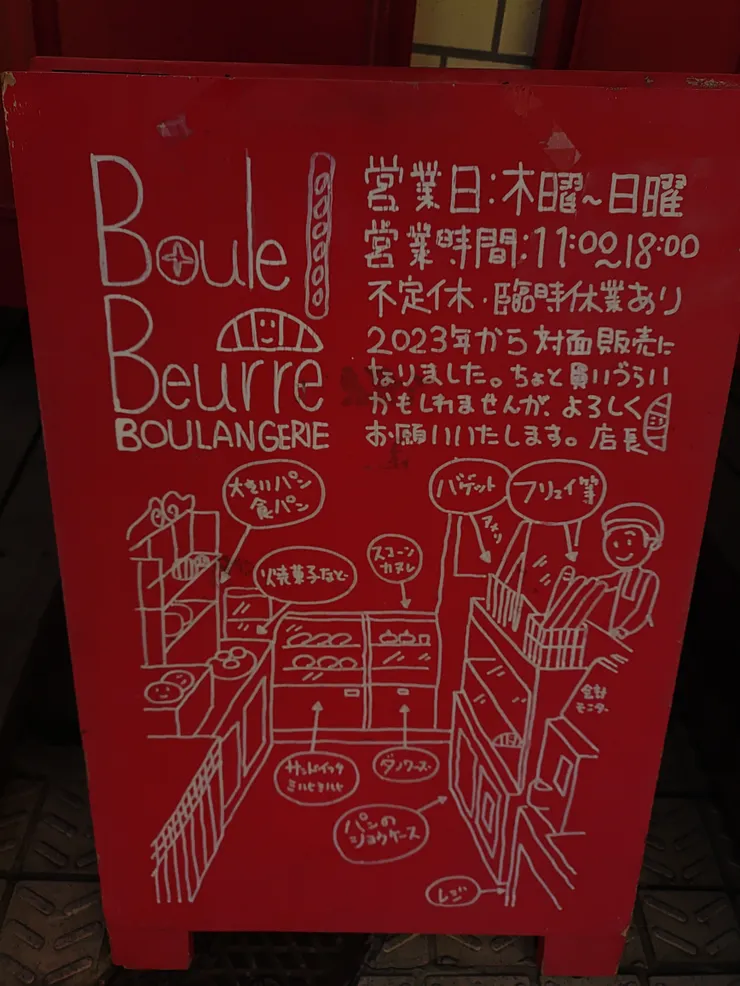 Boule
Beurre
BOULANGERIE
営業日:木曜~日曜
営業時間:11:00~18:00
不定休・臨時休業あり
2023年から対面販売に
なりました。ちょと買いづらい
かもしれませんが、よろしく
お願いいたします。店長
大きいパン
食パン
焼菓子など
スコーン
カヌレ
バゲット
フリュイ等
会計
モニター
サンドイッチ
デノワーズ
パンの
ショウケース
レジ